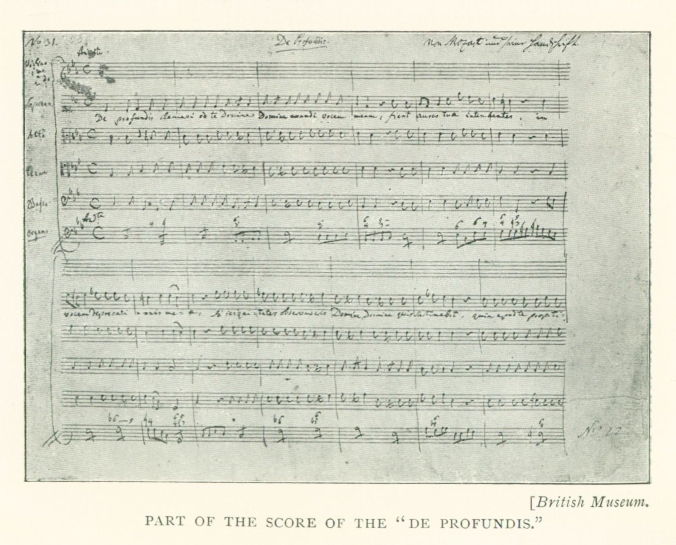 No 31.
De Profundis.
von Mozart und seine Handschrift
Andte
Soprano
Alto
Tenor
Basso
Organo
De profundis clamavi ad te Domine Domine exaudi vocem meam, fiant aures tuæ intendentes, in
Andte
vocem deprecationis meæ, Si iniquitates observaveris Domine Domine quis sustinebit. quia apud te propiti-
[British Museum.
PART OF THE SCORE OF THE “DE PROFUNDIS.”